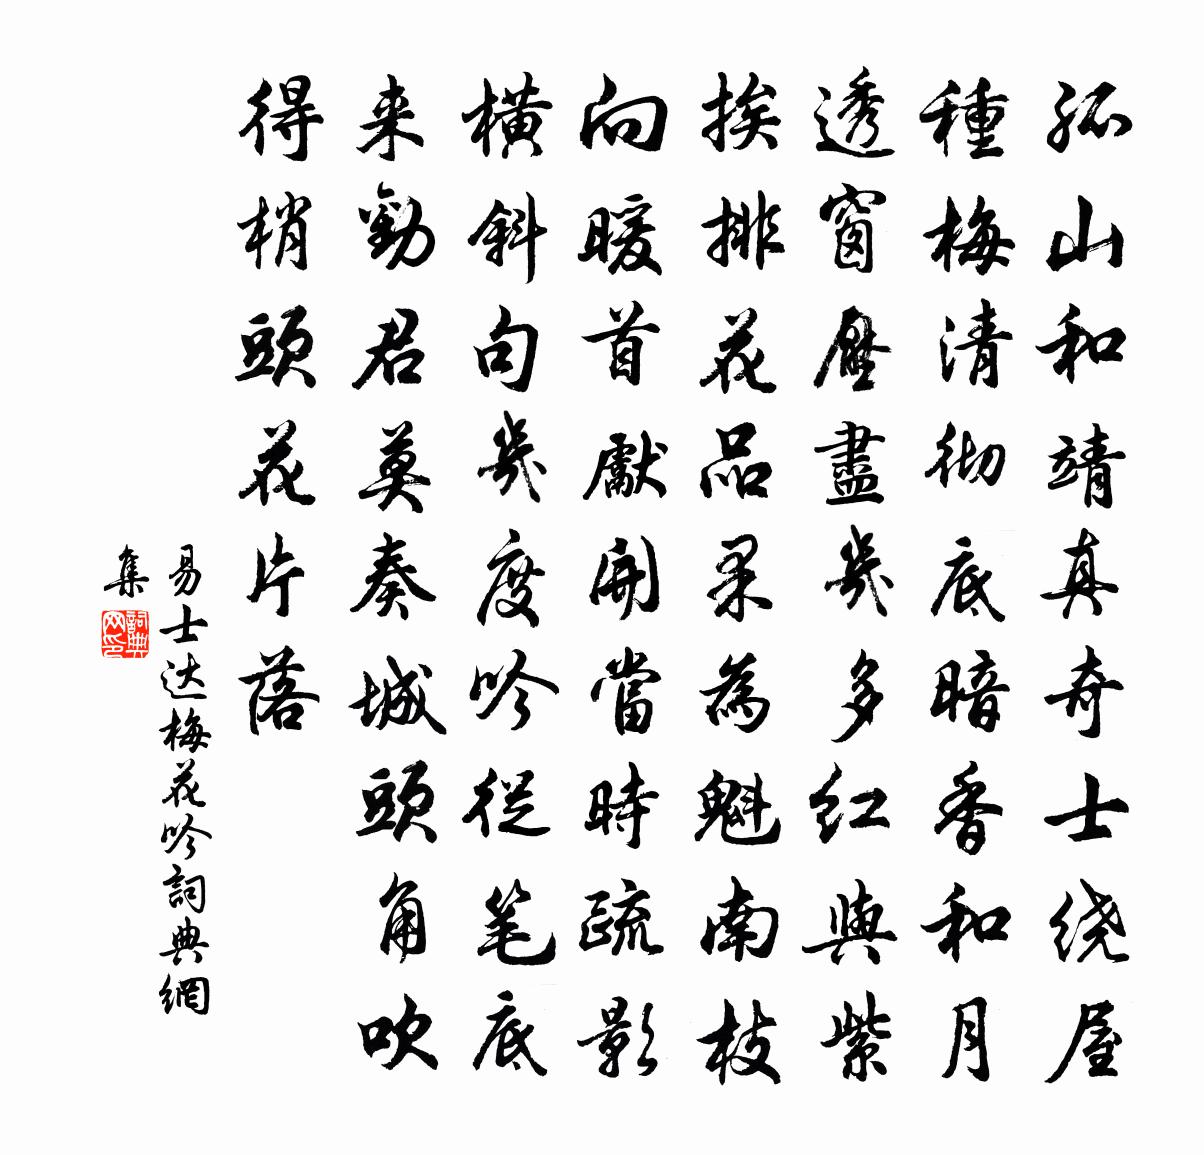 孤山和靖真奇士绕屋
種梅清彻底暗香和月
透窗壓盡幾多红與紫
挨排花品果為魁南枝
向暖首獻開當時疏影
橫斜句幾度吟從笔底
来勸君莫奏城頭角吹
得梢頭花片落
易士达梅花吟詞典網
集
詞典网印